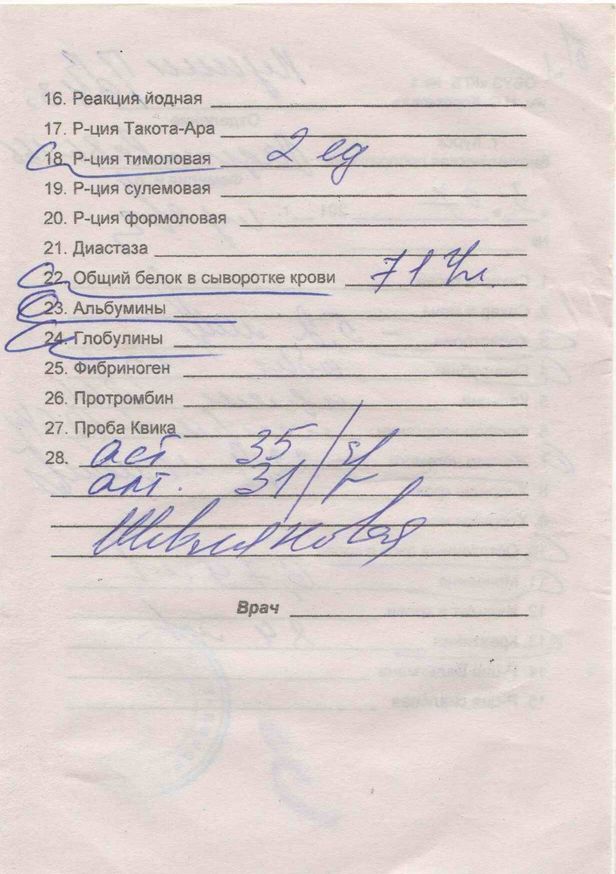 16. Реакция йодная
17. Р-ция Такота-Ара
18. Р-ция тимоловая 2 ед
19. Р-ция сулемовая
20. Р-ция формоловая
21. Диастаза
22. Общий белок в сыворотке крови 71 г/л.
23. Альбумины
24. Глобулины
25. Фибриноген
26. Протромбин
27. Проба Квика
28. аст 35
алт. 31
Врач